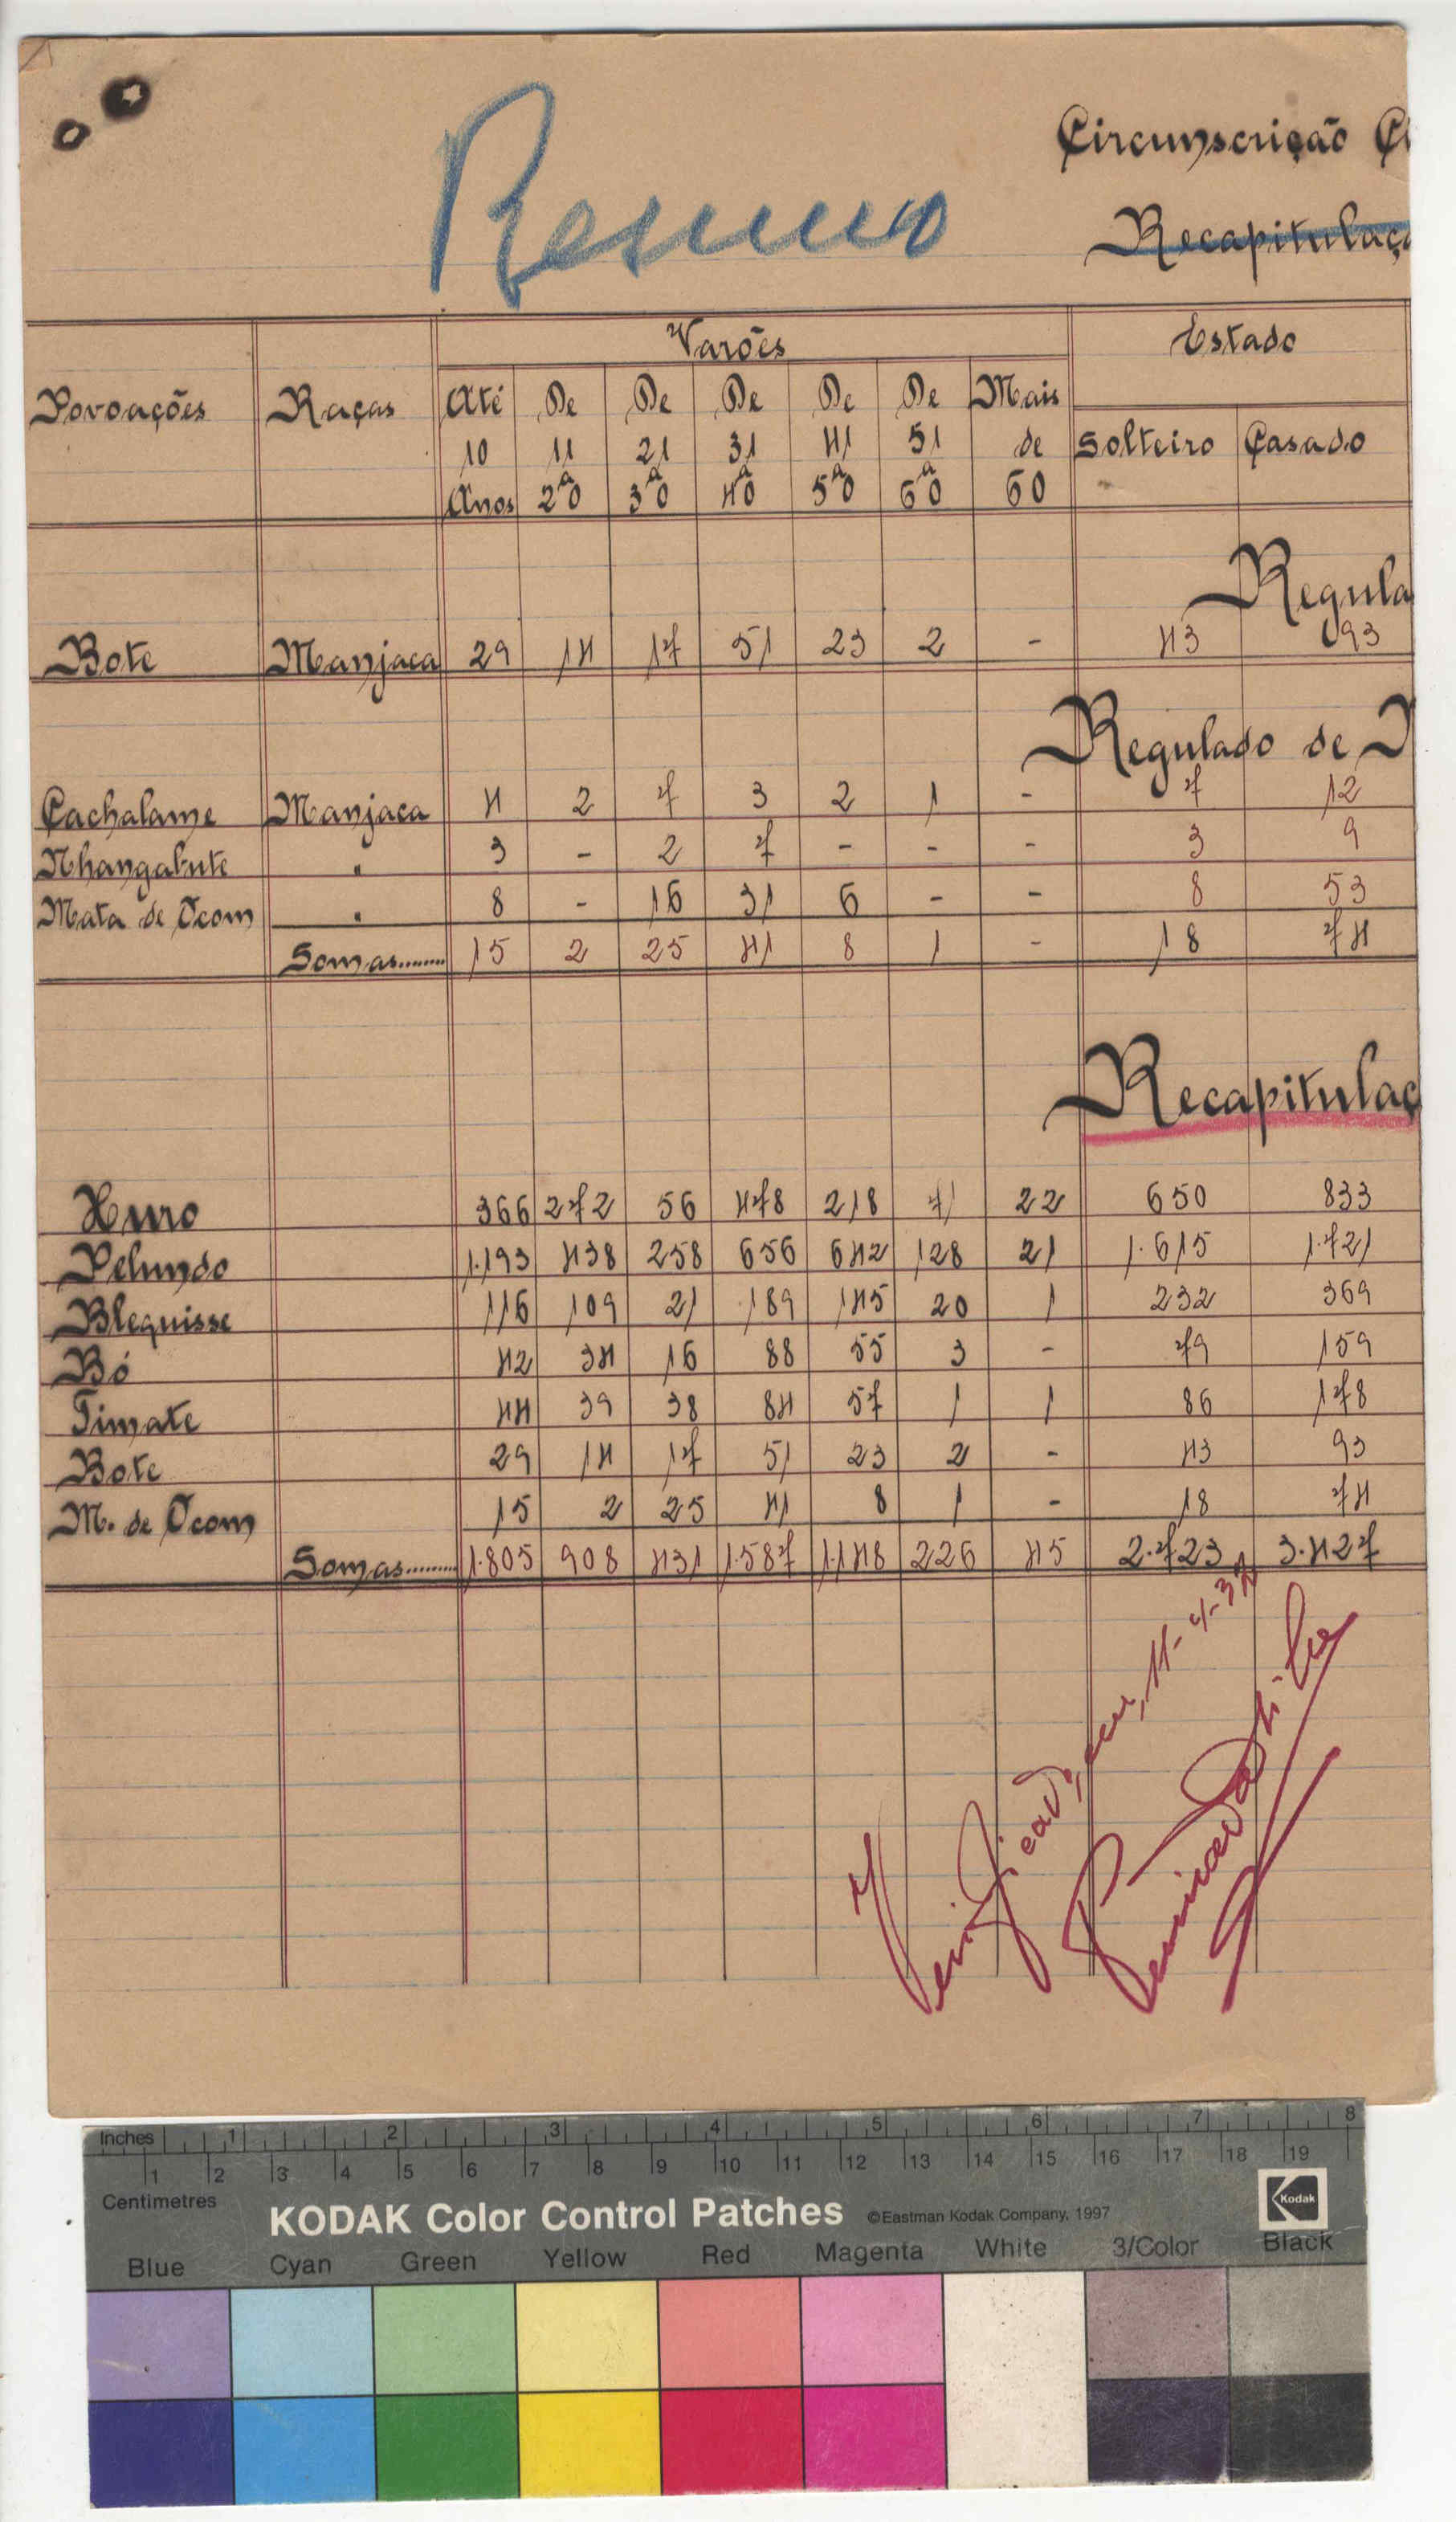 Resumo
Circunscrição Ci
Recapitulaçã
Povoações Raças Varões Estado
Até De De De De De Mais
10 11 21 31 41 51 de Solteiro Casado
Anos a 20 a 30 a 40 a 50 a 60 60
Regula
Bote Manjaca 29 14 17 51 23 2 - 43 93
Regulado de
Cachalame Manjaca 4 2 7 3 2 1 - 7 12
Nhangabute " 3 - 2 7 - - - 3 9
Mata de Ocom " 8 - 16 31 6 - - 8 53
Somas........ 15 2 25 41 8 1 - 18 74
Recapitulaç
Xuro 366 272 56 478 218 71 22 650 833
Pelundo 1.193 438 258 656 642 128 21 1.615 1.721
Blequisse 116 109 21 189 145 20 1 232 369
Bó 42 34 16 88 55 3 - 79 159
Timate 44 39 38 84 57 1 1 86 178
Bote 29 14 17 51 23 2 - 43 93
M. de Ocom 15 2 25 41 8 1 - 18 74
Somas........ 1.805 908 431 1.587 1.148 226 45 2.723 3.427
Verificado,
Inches 1 2 3 4 5 6 7 8
1 2 3 4 5 6 7 8 9 10 11 12 13 14 15 16 17 18 19
Centimetres
KODAK Color Control Patches ©Eastman Kodak Company, 1997 Kodak
Blue Cyan Green Yellow Red Magenta White 3/Color Black